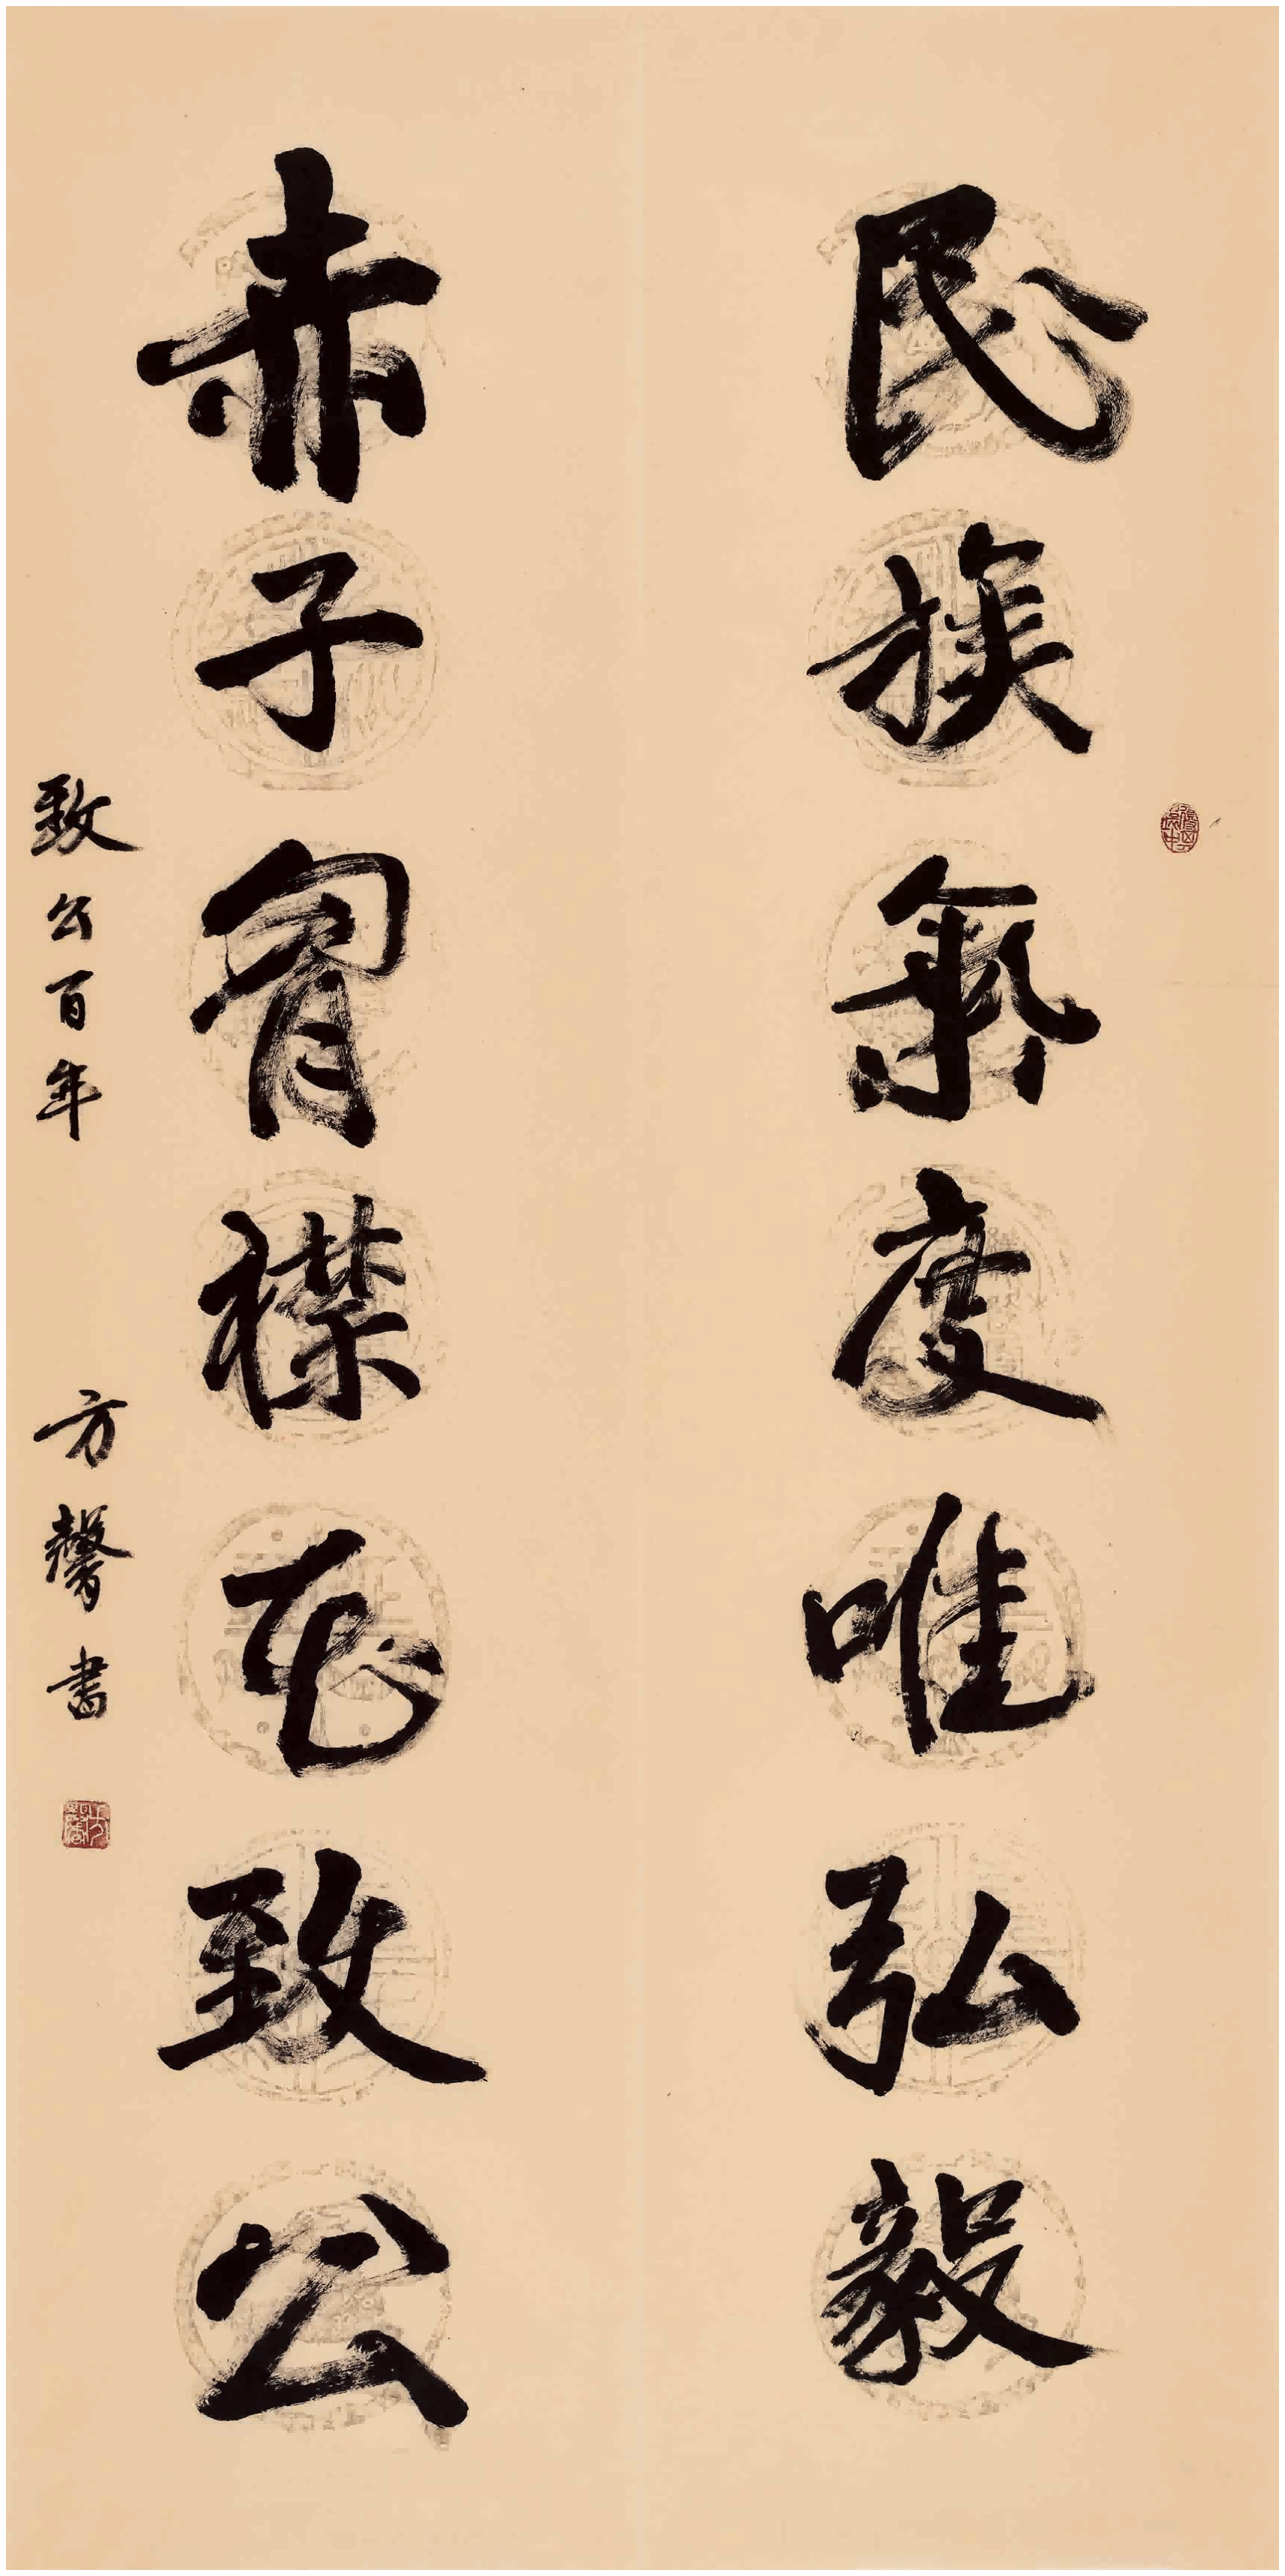 民族氣度唯弘毅
赤子胷襟在致公
致公百年
方馨書